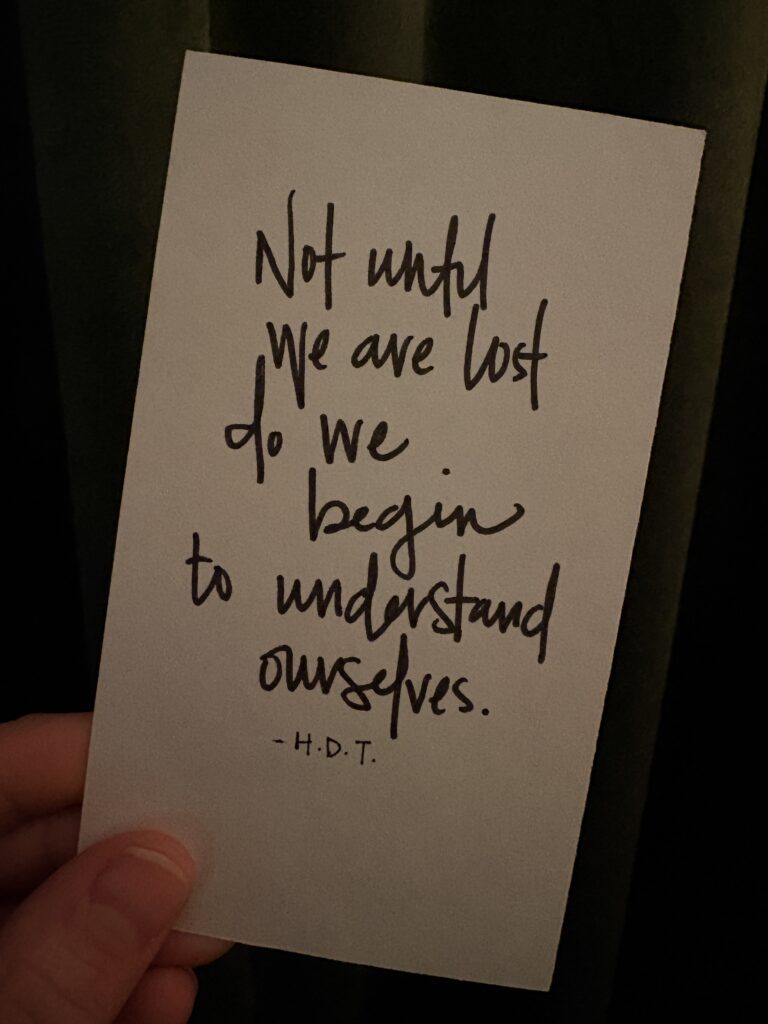 Not until
we are lost
do we
begin
to understand
ourselves.
- H.D.T.